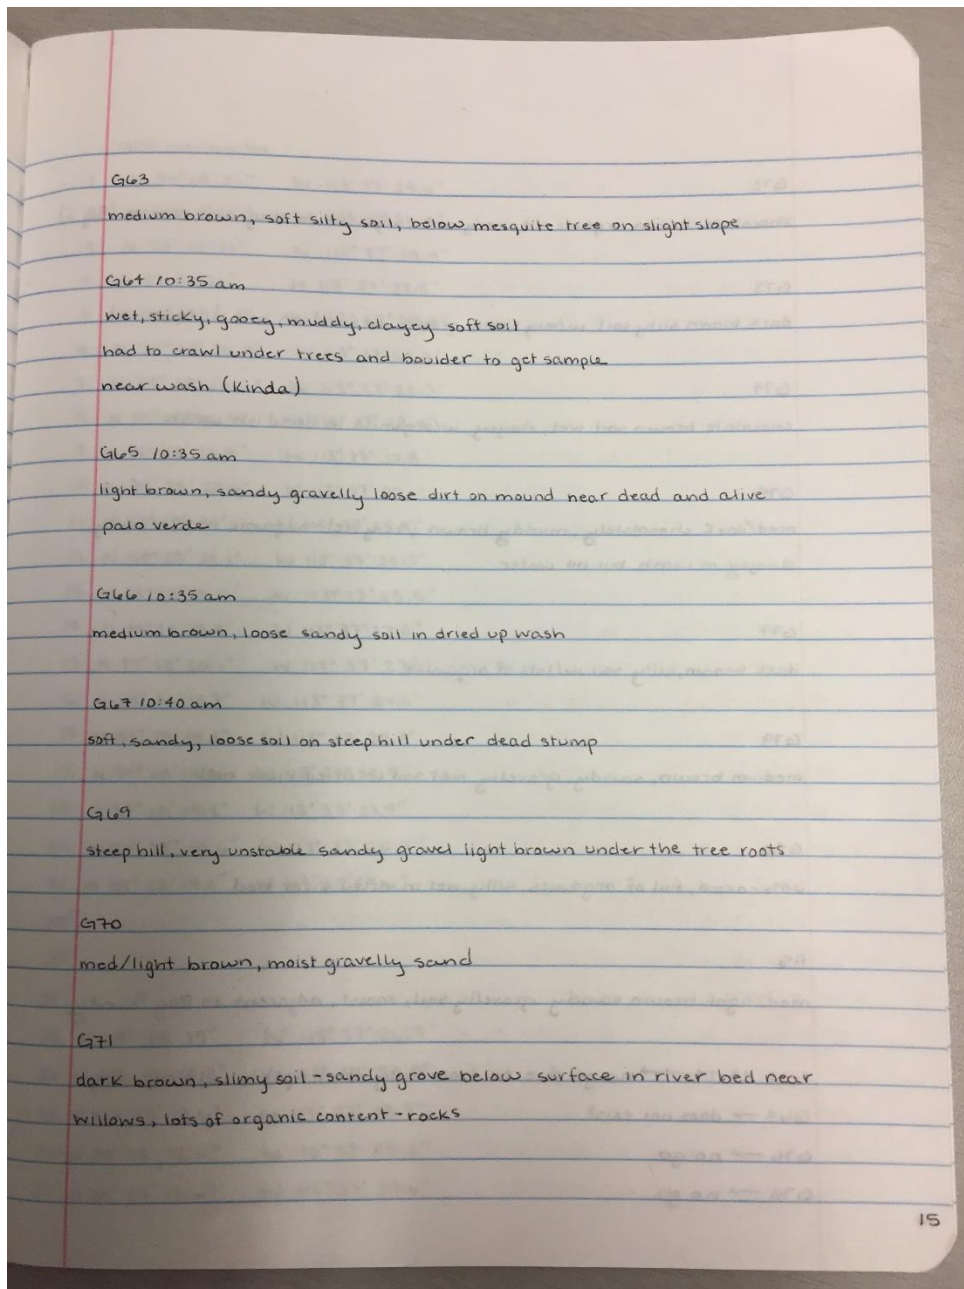 G63
medium brown, soft silty soil, below mesquite tree on slight slope
G64 10:35 am
wet, sticky, gooey, muddy, clayey soft soil
had to crawl under trees and boulder to get sample
near wash (kinda)
G65 10:35 am
light brown, sandy gravelly loose dirt on mound near dead and alive
palo verde
G66 10:35 am
medium brown, loose sandy soil in dried up wash
G67 10:40 am
soft, sandy, loose soil on steep hill under dead stump
G69
steep hill, very unstable sandy gravel light brown under the tree roots
G70
med/light brown, moist gravelly sand
G71
dark brown, slimy soil - sandy grove below surface in river bed near
willows, lots of organic content - rocks
15